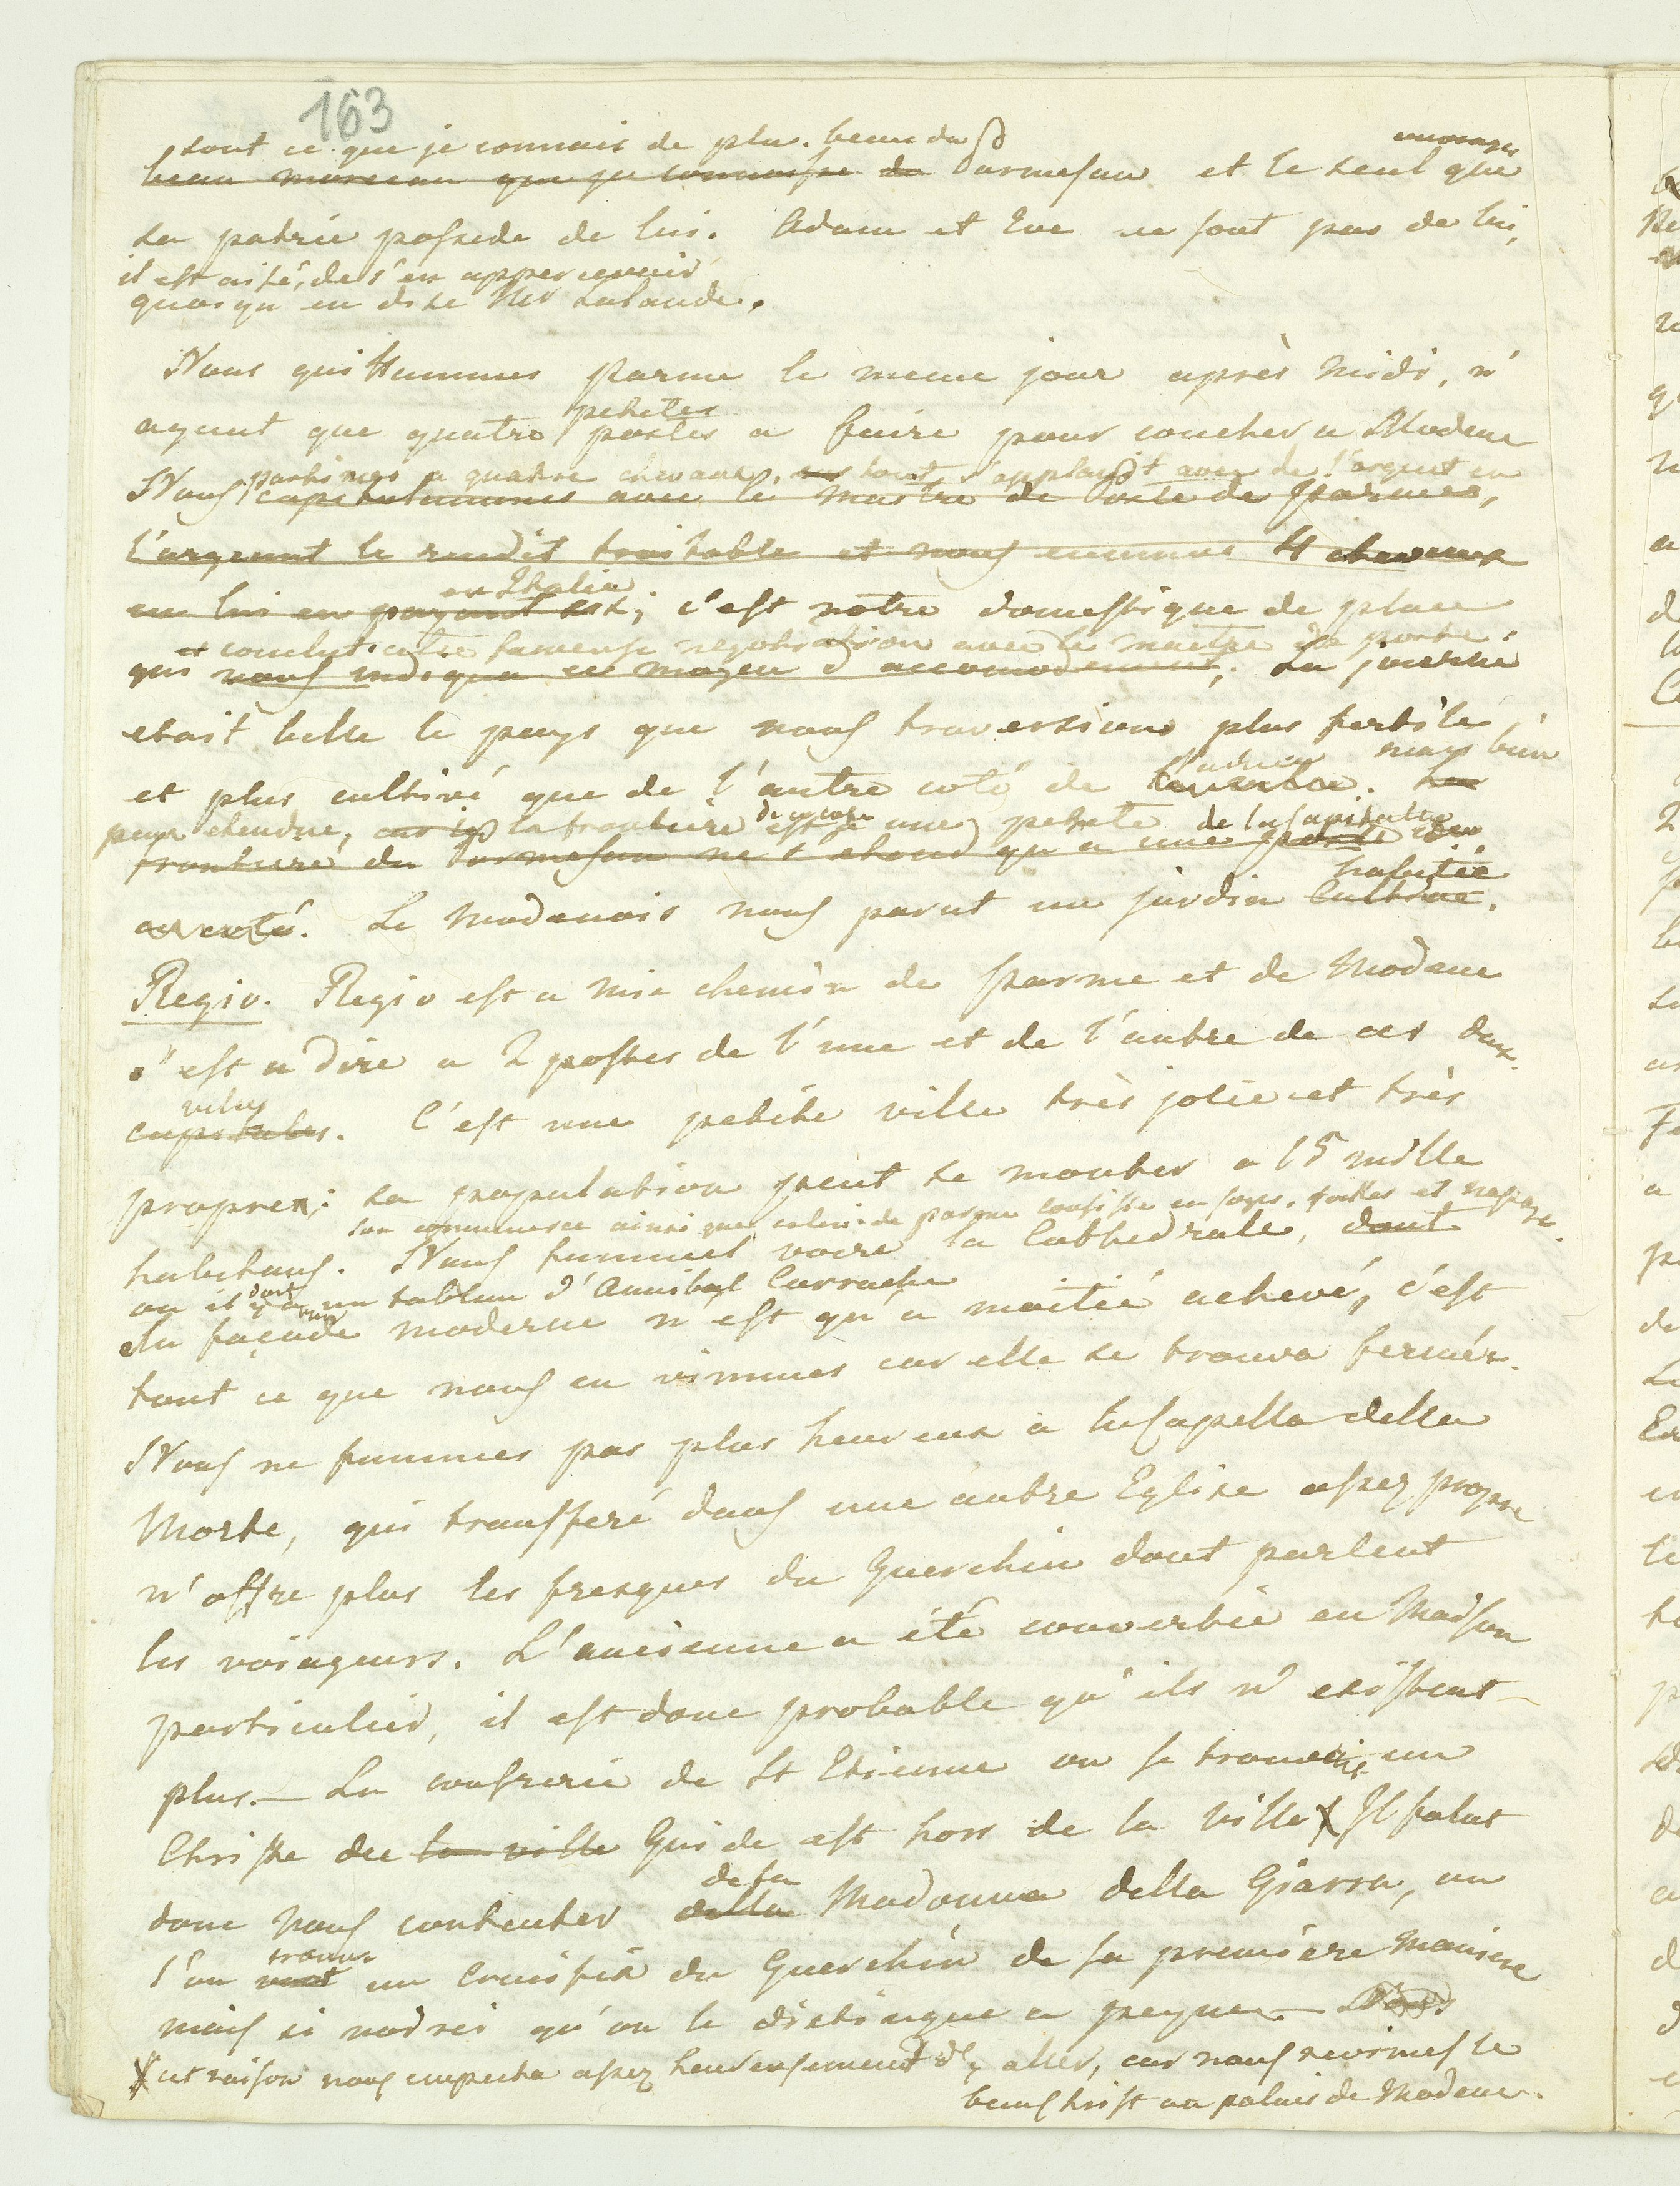 163
sont ce que je connais de plus beau du
beau morceau que je connaisse du Parmesan et le seul que
ouvrages
sa patrie possede de lui. Adam et Eve ne sont pas de lui,
il est aisé, de s'en appercevoir
quoiqu'en dise Mr Lalande.
Nous quittummes Parme le meme jour après midi, n'
petites
ayant que quatre postes a faire pour coucher a Modene
partimes a quatre chevaux, tout s'applanit avec de l'argent en
Nous capitulummes avec le maitre de Poste de Parme,
l'argent le rendit traitable et nous eummes 4 chevaux
en Italie
en lui en payant six; c'est notre domestique de place
et conclut cette fameuse negotiation avec le maitre de poste.
qui nous indiqua ce moyen d'accomodement; La journée
etait belle le pays que nous traversions plus fertile
mais bien
et plus cultivé que de l'autre coté de
peu etendue, la frontiere est a une petite de la Capitale
frontiere du Parmesan ne s'etend qu'a une poste de
habitée
ce coté. Le Modenois nous parut un jardin cultivé.
Regio. Regio est a mie chemin de Parme et de Modene
c'est a dire a 2 postes de l'une et de l'autre de ces deux
villes
capitales. C'est une petite ville très jolie et très
propre; sa population peut se monter a 15 mille
son commerce ainsi que celui de parme consiste en soyes,
habitans. Nous fummes voire la Cathedrale, dont
ou il y a un tableau d'Annibal Carrache
la façade moderne n'est qu'a moitié achevé, c'est
tout ce que nous en vimmes car elle se trouva fermée.
Nous ne fummes pas plus heureux a la Capella della
Morte, qui transferé dans une autre Eglise assez propre
n'offre plus les fresques du Guerchin dont parlent
les voiageurs. L'ancienne a été convertie en Maison
particulier, il est donc probable qu'ils n'existent
plus. — La confrerie de St Etienne ou se trouvait un
Christe du la ville Guide est hors de la ville X Il falut
de la
donc nous contenter della Madonna della Giarra, ou
trouve
l'on voit un Crucifix du Guerchin de sa première maniere
mais si noirci qu'on le distingue a peyne —
X cet raison nous empecha assez heureusement d'y aller, car nous revimes le
beau Christ au palais de Modene.